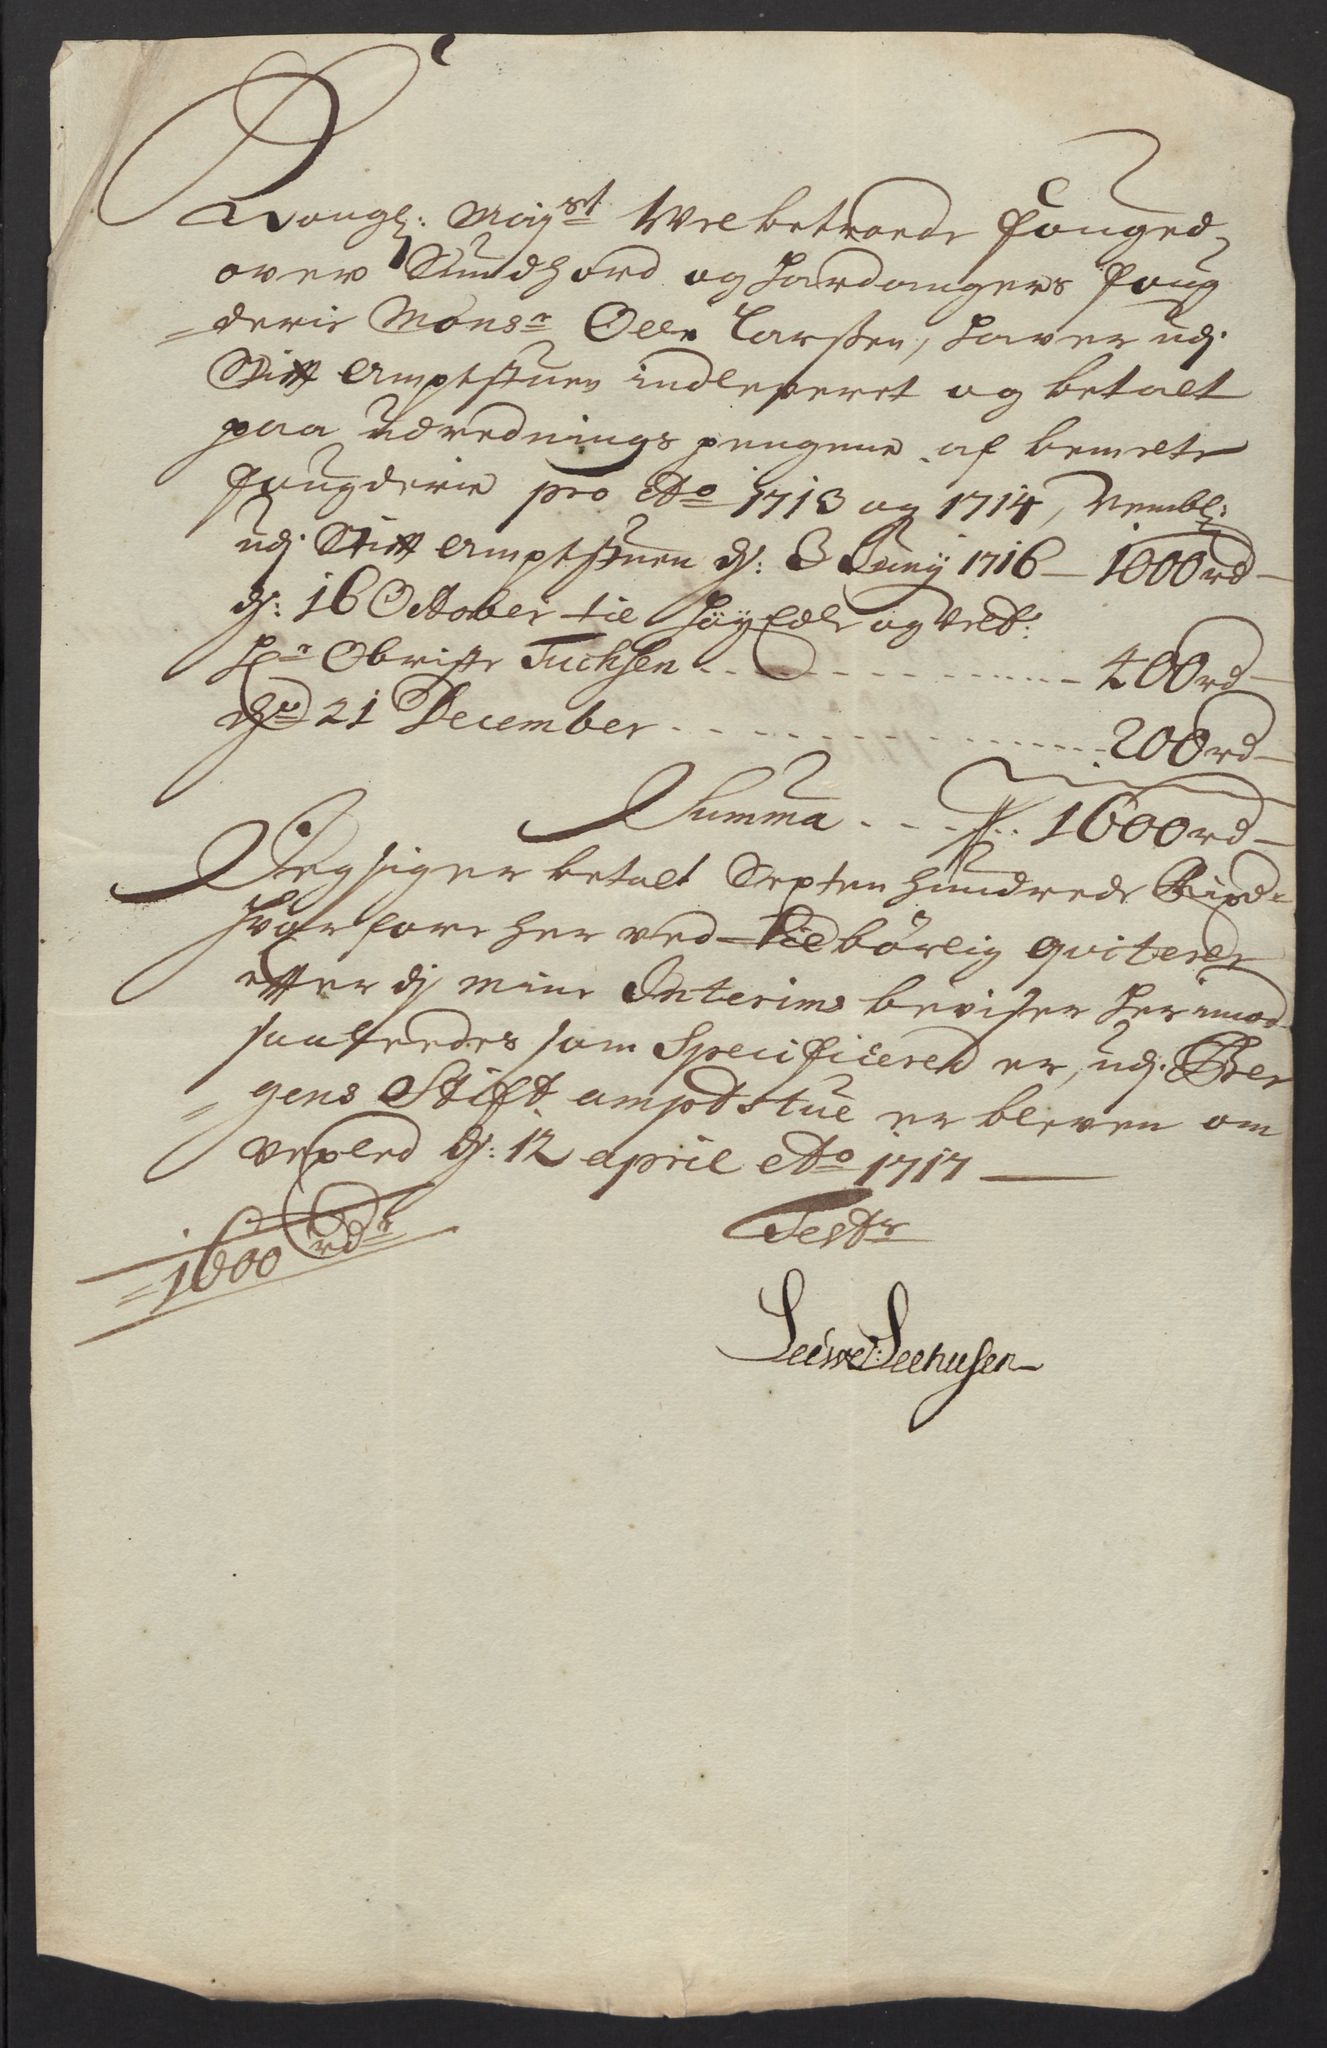 Kongl: Mays.t Welbetroede fouged
over Sundhord og Hardangers foug
derie Monsr Olle Larssen, haver udj
Stift Amptstuen indleveret og betalt
paa udrednings pengene af bemelte
fougderie pro Ao 1713 og 1714, Nembl:
udj Stift Amptstuen dj: 3 Junij 1716 - 1000 rd -
dj: 16 October til Høy Edle og Velb:
Hr Obriste Tuchsen - - - 400 rd -
21 December - - - 200 rd -
Summa - - - 1600 rd -
Jeg siger betalt Sexten hundrede Rixdr
hvor fore her ved tilbørlig qviteres
efter dj mine Interims beviser her imod
saaleedes som Specificered er, udj Ber
gens Stift ampdstue er bleven om
vexled dj: 12 april Ao 1717
1600 rdr
Test.
Seehusen